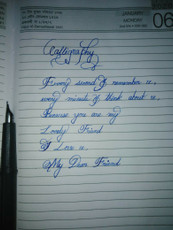 JANUARY
MONDAY
06
Calligraphy
Every second I remember u,
every minute I think about u,
Because you are my
Lovely Friend
I Love u
My Dear Friend